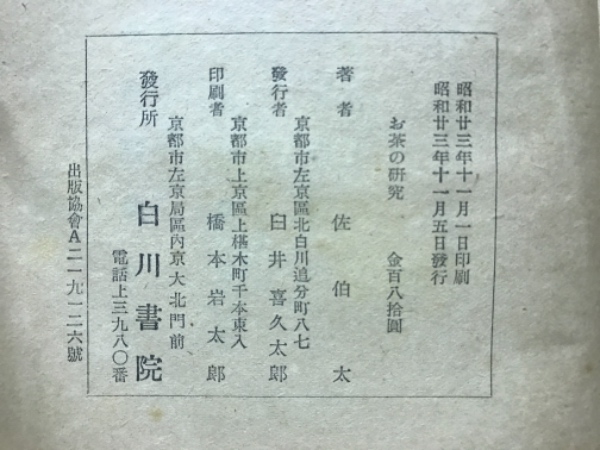 昭和廿三年十一月一日印刷
昭和廿三年十一月五日發行
お茶の研究　金百八拾圓
著者　佐伯太
京都市左京區北白川追分町八七
發行者　臼井喜久太郎
京都市上京區上椹木町千本東入
印刷者　橋本岩太郎
京都市左京局區內京大北門前
發行所　白川書院
電話上三九八〇番
出版協會A二一九一二六號